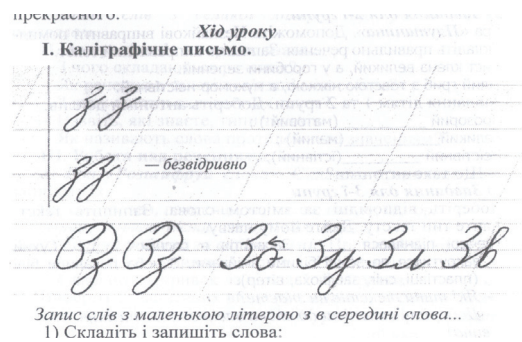 прекрасного.
Хід уроку
І. Каліграфічне письмо.
з з
з з — безвідривно
Зз Зз Зб Зу Зл Зв
Запис слів з маленькою літерою з в середині слова...
1) Складіть і запишіть слова: